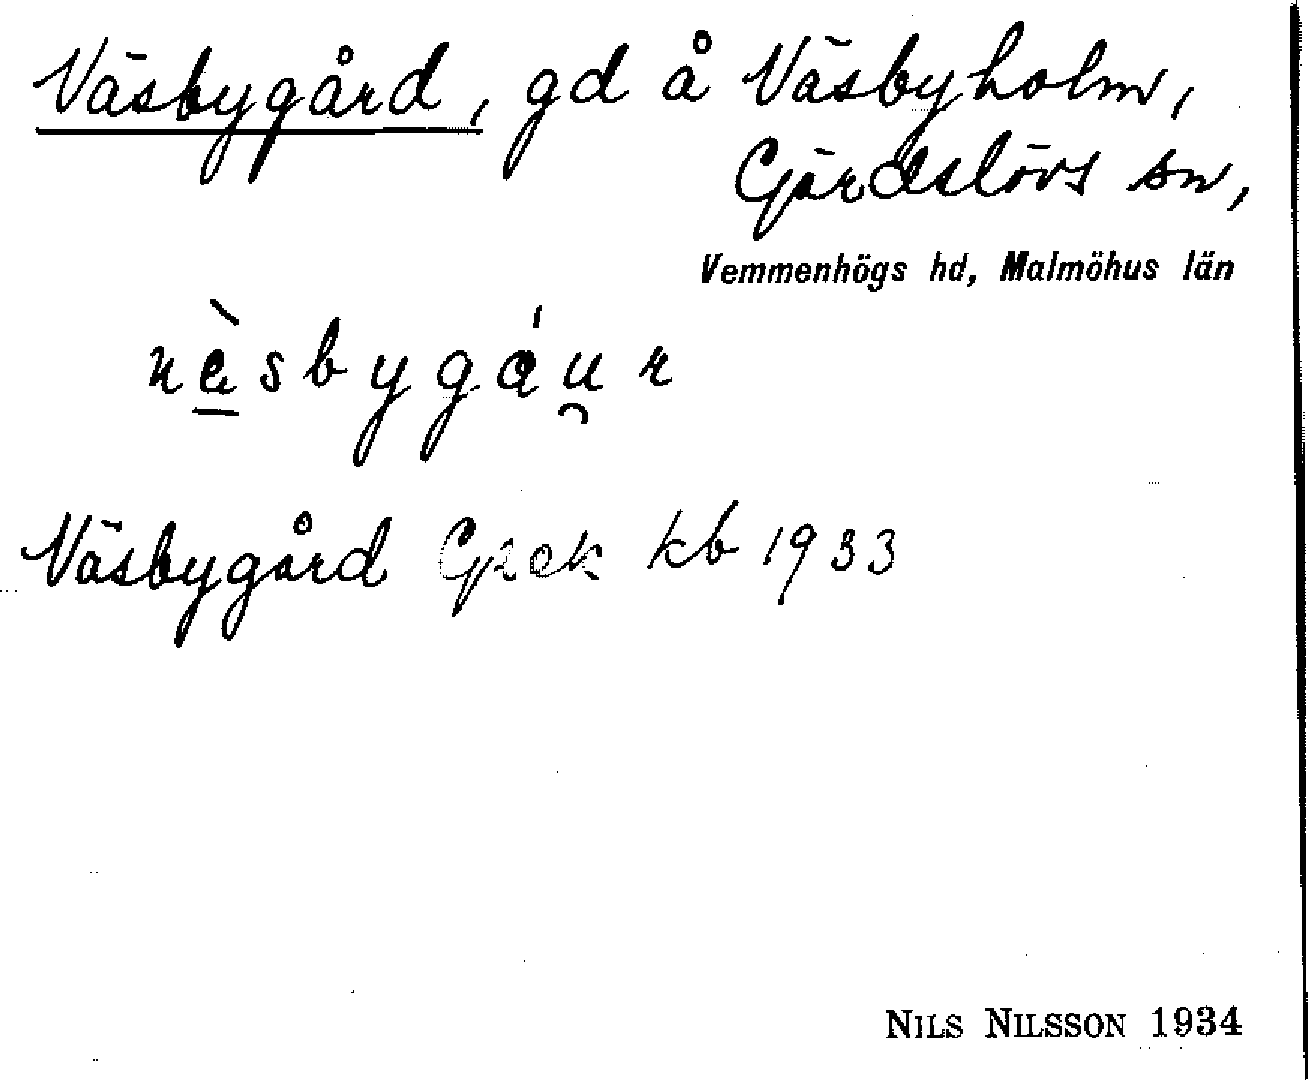 Näsbygård, gd å Näsbyholm,
Gärdslövs sn,
Vemmenhögs hd, Malmöhus län
nè̠sbygáu̯r
Näsbygård kb 1933
NILS NILSSON 1934